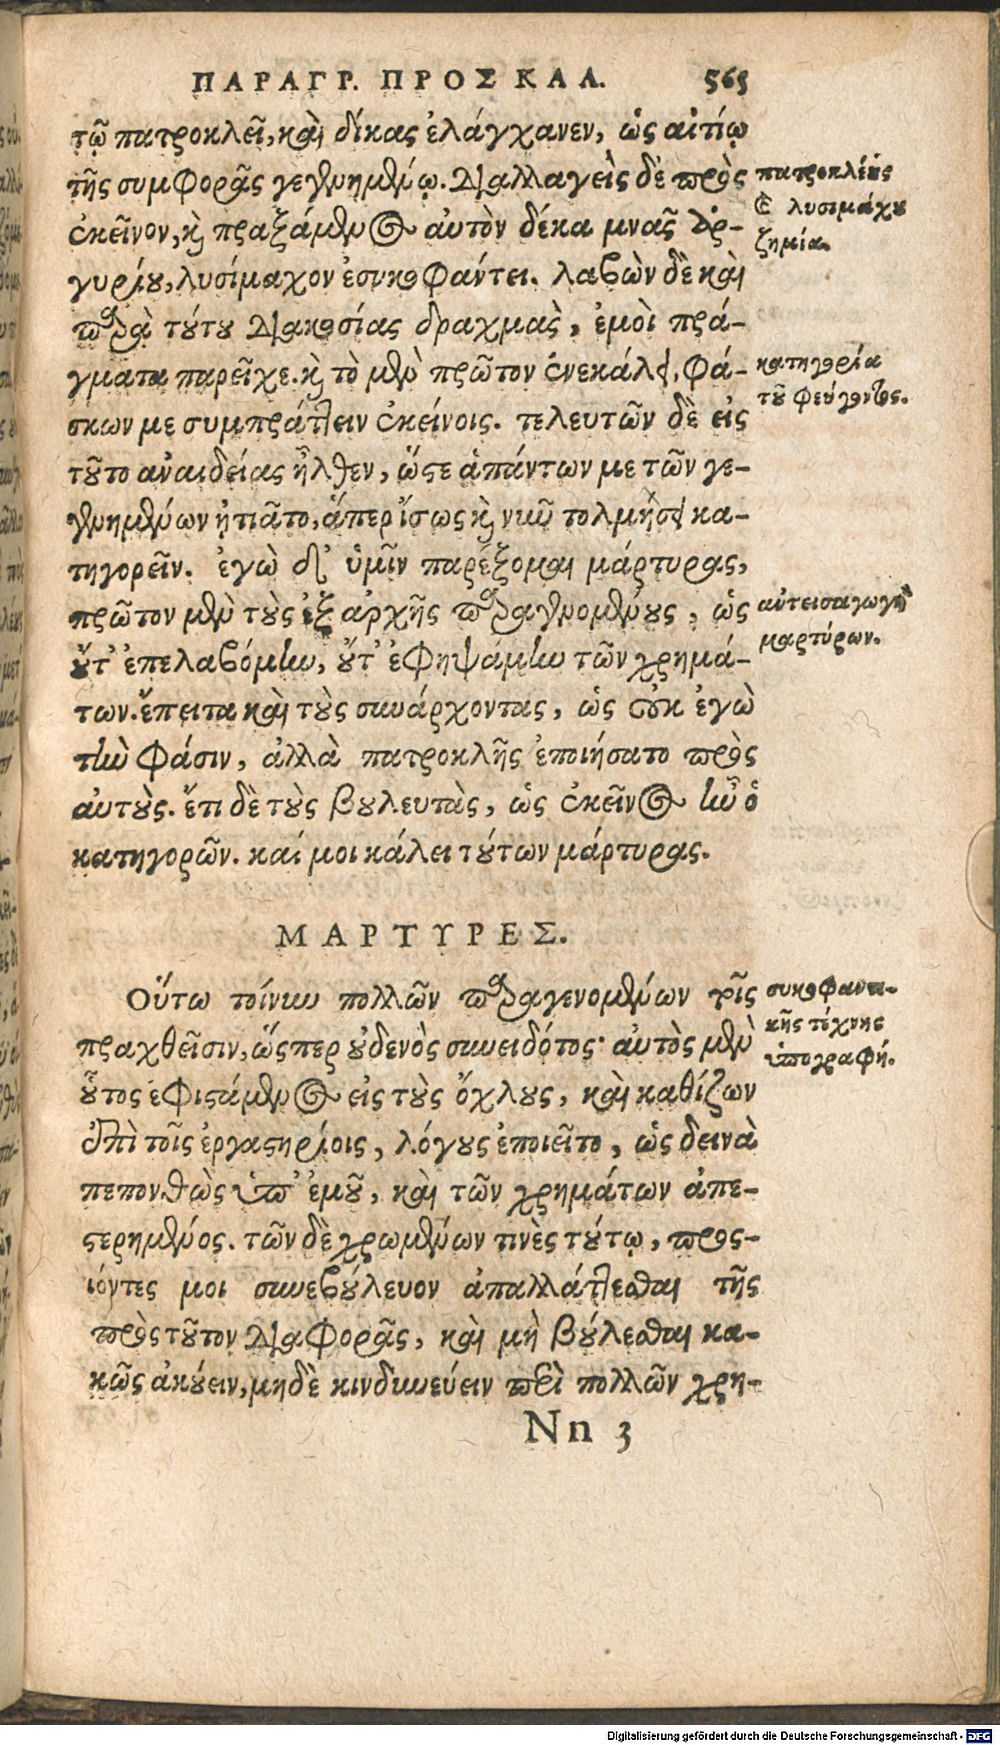 ΠΑΡΑΓΡ. ΠΡΟΣ ΚΑΛ. 565
τῷ πατροκλεῖ, καὶ δίκας ἐλάγχανεν, ὡς αἰτίῳ
τῆς συμφορᾶς γεγενημένῳ. διαλλαγεὶς δὲ πρὸς
ἐκεῖνον, καὶ πραξάμενος αὐτὸν δέκα μνᾶς ἀρ-
γυρίου, λυσίμαχον ἐσυκοφάντει. λαβὼν δὲ καὶ
παρὰ τούτου διακοσίας δραχμὰς, ἐμοὶ πρά-
γματα παρεῖχε. καὶ τὸ μὲν πρῶτον ἐνεκάλει, φά-
σκων με συμπράττειν ἐκείνοις. τελευτῶν δὲ εἰς
τοῦτο ἀναιδείας ἦλθεν, ὥστε ἁπάντων με τῶν γε-
γενημένων ᾐτιᾶτο, ἅπερ ἴσως καὶ νῦν τολμήσει κα-
τηγορεῖν. ἐγὼ δ' ὑμῖν παρέξομαι μάρτυρας,
πρῶτον μὲν τοὺς ἐξ ἀρχῆς παραγενομένους, ὡς
οὔτ' ἐπελαβόμην, οὔτ' ἐφηψάμην τῶν χρημά-
των. ἔπειτα καὶ τοὺς συνάρχοντας, ὡς οὐκ ἐγὼ
τὴν φάσιν, ἀλλὰ πατροκλῆς ἐποιήσατο πρὸς
αὐτούς. ἔτι δὲ τοὺς βουλευτὰς, ὡς ἐκεῖνος ἦν ὁ
κατηγορῶν. καί μοι κάλει τούτων μάρτυρας.
ΜΑΡΤΥΡΕΣ.
Οὕτω τοίνυν πολλῶν παραγενομένων τοῖς
πραχθεῖσιν, ὥσπερ οὐδενὸς συνειδότος· αὐτὸς μὲν
οὗτος ἐφιστάμενος εἰς τοὺς ὄχλους, καὶ καθίζων
ἐπὶ τοῖς ἐργαστηρίοις, λόγους ἐποιεῖτο, ὡς δεινὰ
πεπονθὼς ὑπ' ἐμοῦ, καὶ τῶν χρημάτων ἀπε-
στερημένος. τῶν δὲ χρωμένων τινὲς τούτῳ, προς-
ιόντες μοι συνεβούλευον ἀπαλλάττεσθαι τῆς
πρὸς τοῦτον διαφορᾶς, καὶ μὴ βούλεσθαι κα-
κῶς ἀκούειν, μηδὲ κινδυνεύειν περὶ πολλῶν χρη-
Nn 3
πατροκλέους
& λυσιμάχου
ζημία.
κατηγορία
τοῦ φεύγοντος.
αὐτεισαγωγὴ
μαρτύρων.
συκοφαντι-
κῆς τέχνης
ὑπογραφή.
Digitalisierung gefördert durch die Deutsche Forschungsgemeinschaft - DFG